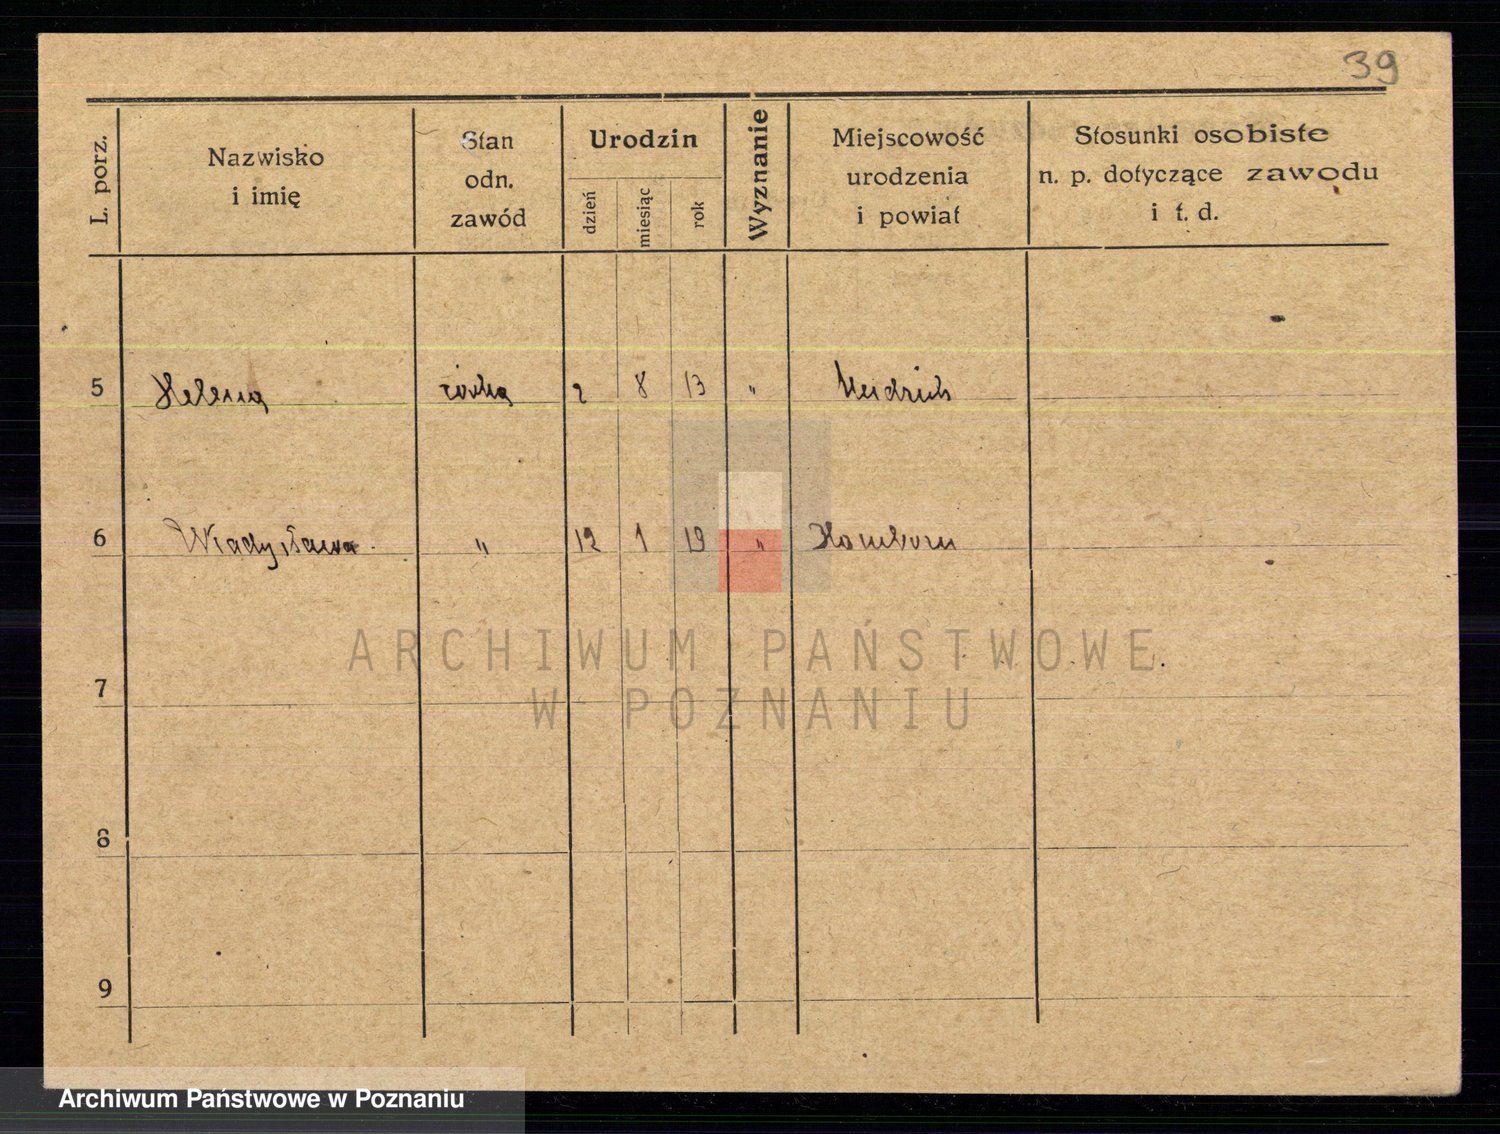 39
L. porz.
Nazwisko
i imię
Stan
odn.
zawód
Urodzin
dzień
miesiąc
rok
Wyznanie
Miejscowość
urodzenia
i powiat
Stosunki osobiste
n. p. dotyczące zawodu
i t. d.
5 Helena córka 2 8 13 "
6 Władysława " 12 1 19 " Hamborn
ARCHIWUM PAŃSTWOWE
W POZNANIU
7
8
9
Archiwum Państwowe w Poznaniu